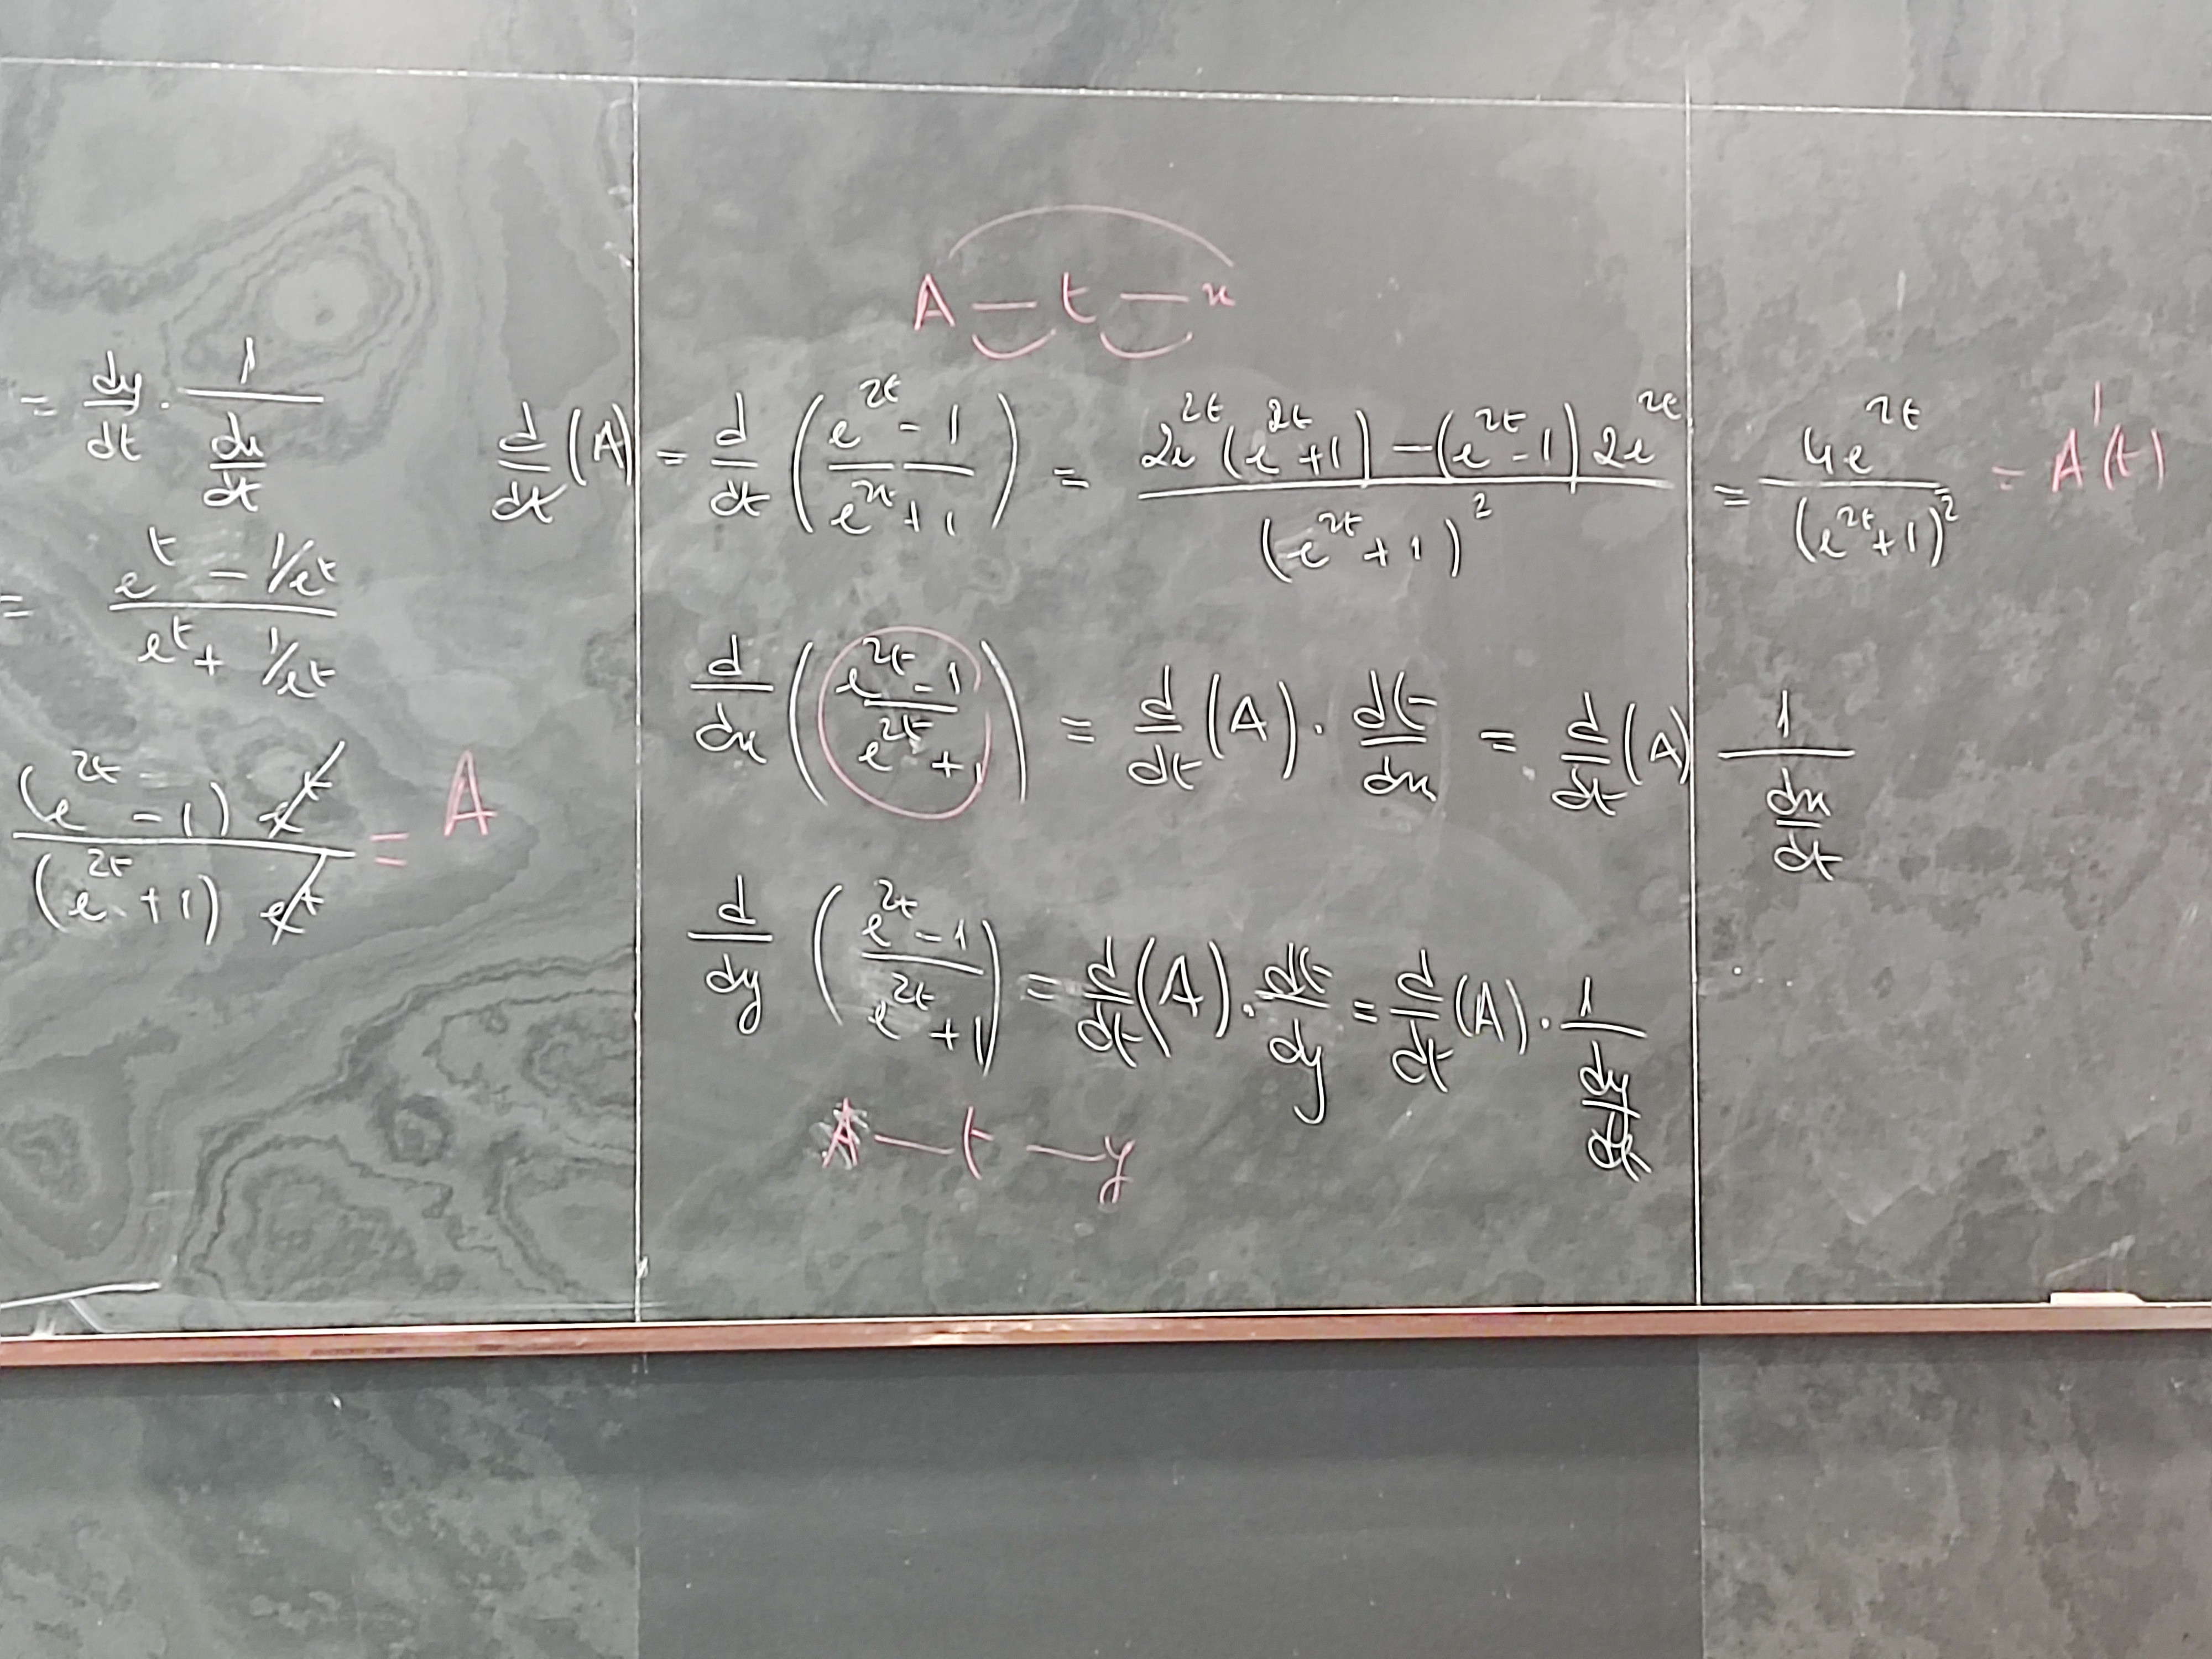 = dy/dt · 1/(dx/dt)
= (e^t - 1/e^t)/(e^t + 1/e^t)
(e^{2t} - 1) e^t / (e^{2t} + 1) e^t = A
A — t — x
d/dt (A) = d/dt ((e^{2t} - 1)/(e^{2t} + 1)) = (2e^{2t}(e^{2t}+1) - (e^{2t}-1) 2e^{2t})/(e^{2t}+1)^2 = 4e^{2t}/(e^{2t}+1)^2 = A'(t)
d/dx ((e^{2t} - 1)/(e^{2t} + 1)) = d/dt (A) · dt/dx = d/dt (A) 1/(dx/dt)
d/dy ((e^{2t} - 1)/(e^{2t} + 1)) = d/dt (A) · dt/dy = d/dt (A) · 1/(dy/dt)
A — t — y